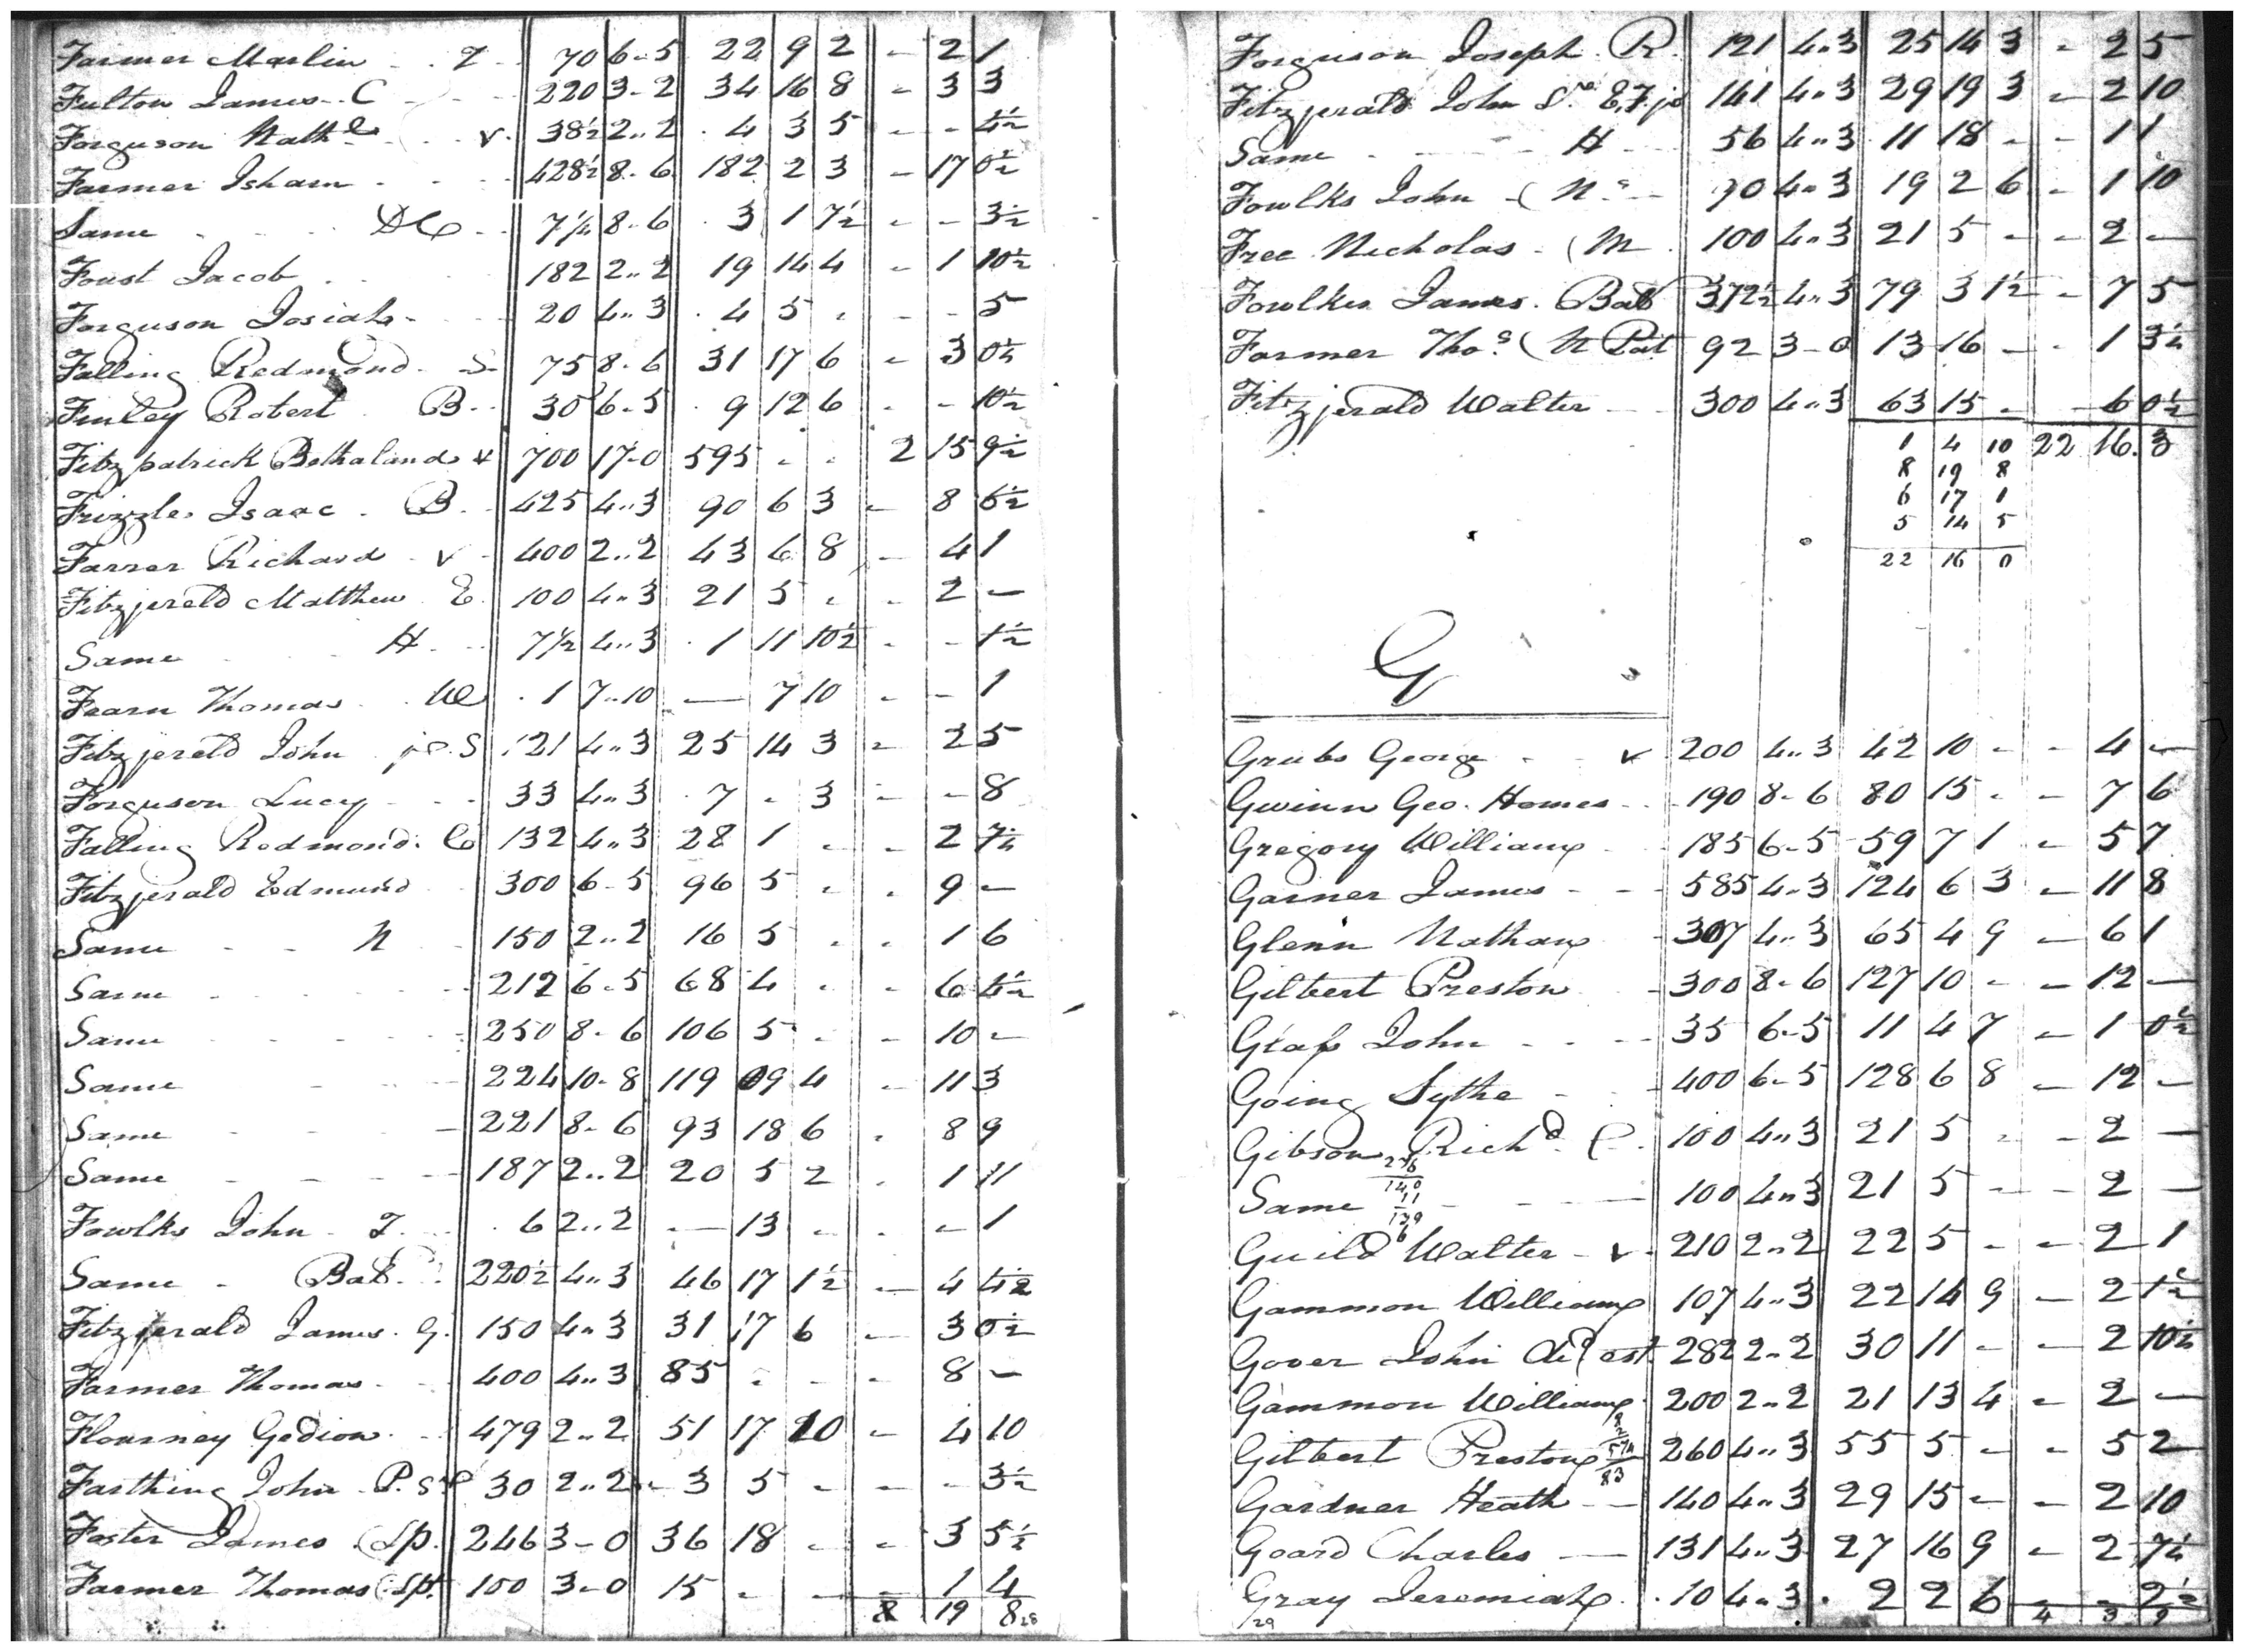 Farmer Marlin - . T - 70 6-5 22 9 2 - 2 1
Fulton James - C - - 220 3-2 34 16 8 - 3 3
Forguson Nathl - - v. 38½ 2..2 4 3 5 - - 4½
Farmer Isham - - - 428½ 8-6 182 2 3 - 17 0½
Same - - - DC - 7¼ 8-6 3 1 7½ - - 3½
Foust Jacob - - 182 2..2 19 14 4 - 1 10½
Forguson Josiah - - 20 4..3 4 5 - - - 5
Falling Redmond - S - 75 8-6 31 17 6 - 3 0½
Finley Robert - B - 30 6-5 9 12 6 - - 10½
Fitzpatrick Bethaland v 700 17-0 595 - - 2 15 9½
Frizzle Isaac - B - 425 4..3 90 6 3 - 8 6½
Farrer Richard - v - 400 2..2 43 6 8 - 4 1
Fitzjerald Matthew E 100 4..3 21 5 - - 2 -
Same - - H - 7½ 4..3 1 11 10½ - - 1½
Fearn Thomas - W - 1 7-10 - 7 10 - - 1
Fitzjerald John jr. S 121 4..3 25 14 3 - 2 5
Forguson Lucy - - - 33 4..3 7 - 3 - - 8
Falling Redmond. C 132 4..3 28 1 - - 2 7½
Fitzjerald Edmund 300 6-5 96 5 - - 9 -
Same - - N 150 2..2 16 5 - - 1 6
Same - - - 212 6-5 68 4 - - 6 4½
Same - - - 250 8-6 106 5 - - 10 -
Same - - - 224 10-8 119 09 4 - 11 3
Same - - - 221 8-6 93 18 6 - 8 9
Same - - - 187 2..2 20 5 2 - 1 11
Fowlks John - T - 6 2..2 - 13 - - - 1
Same - Bat. - 220½ 4..3 46 17 1½ - 4 4½
Fitzjerald James. G. 150 4..3 31 17 6 - 3 0½
Farmer Thomas - - 400 4..3 85 - - - 8 -
Flourney Gedion - 479 2..2 51 17 10 - 4 10
Farthing John - P. S 30 2..2 3 5 - - - 3½
Foster James (Sp. 246 3-0 36 18 - - 3 5½
Farmer Thomas (Sp. 100 3-0 15 - - - 1 4
8 19 8 28
Forguson Joseph. R. 121 4..3 25 14 3 - 2 5
Fitzjerald John Sr. E.F. 141 4..3 29 19 3 - 2 10
Same - - - H - 56 4..3 11 18 - - 1 1
Fowlks John - (N. - 90 4..3 19 2 6 - 1 10
Free Nicholas - (M 100 4..3 21 5 - - 2 -
Fowlkes James. Bat 372½ 4..3 79 3 1½ - 7 5
Farmer Thos. (N Pat 92 3-0 13 16 - - 1 3½
Fitzjerald Walter - - 300 4..3 63 15 - - 6 0½
1 4 10 22 16. 3
8 19 8
6 17 1
5 14 5
22 16 0
G
Grubs George - - v 200 4..3 42 10 - - 4 -
Gwinn Geo. Homes - - 190 8-6 80 15 - - 7 6
Gregory William - 185 6-5 59 7 1 - 5 7
Garner James - - - 585 4..3 124 6 3 - 11 8
Glenn Nathan - 307 4..3 65 4 9 - 6 1
Gilbert Preston - 300 8-6 127 10 - - 12 -
Glass John - - - 35 6-5 11 4 7 - 1 0½
Going Sythe - - 400 6-5 128 6 8 - 12 -
Gibson Richd. C. 100 4..3 21 5 - - 2 -
140
11
129
6
Same - - - 100 4..3 21 5 - - 2 -
Guild Walter - v - 210 2..2 22 5 - - 2 1
Gammon William 107 4..3 22 14 9 - 2 1½
Gover John decd est. 282 2..2 30 11 - - 2 10½
Gammon William 200 2..2 21 13 4 - 2 -
Gilbert Preston 260 4..3 55 5 - - 5 2
83
Gardner Heath - - 140 4..3 29 15 - - 2 10
Goard Charles - 131 4..3 27 16 9 - 2 7½
Gray Jeremiah. 10 4..3 2 2 6 - - 2½
29 4 3 9